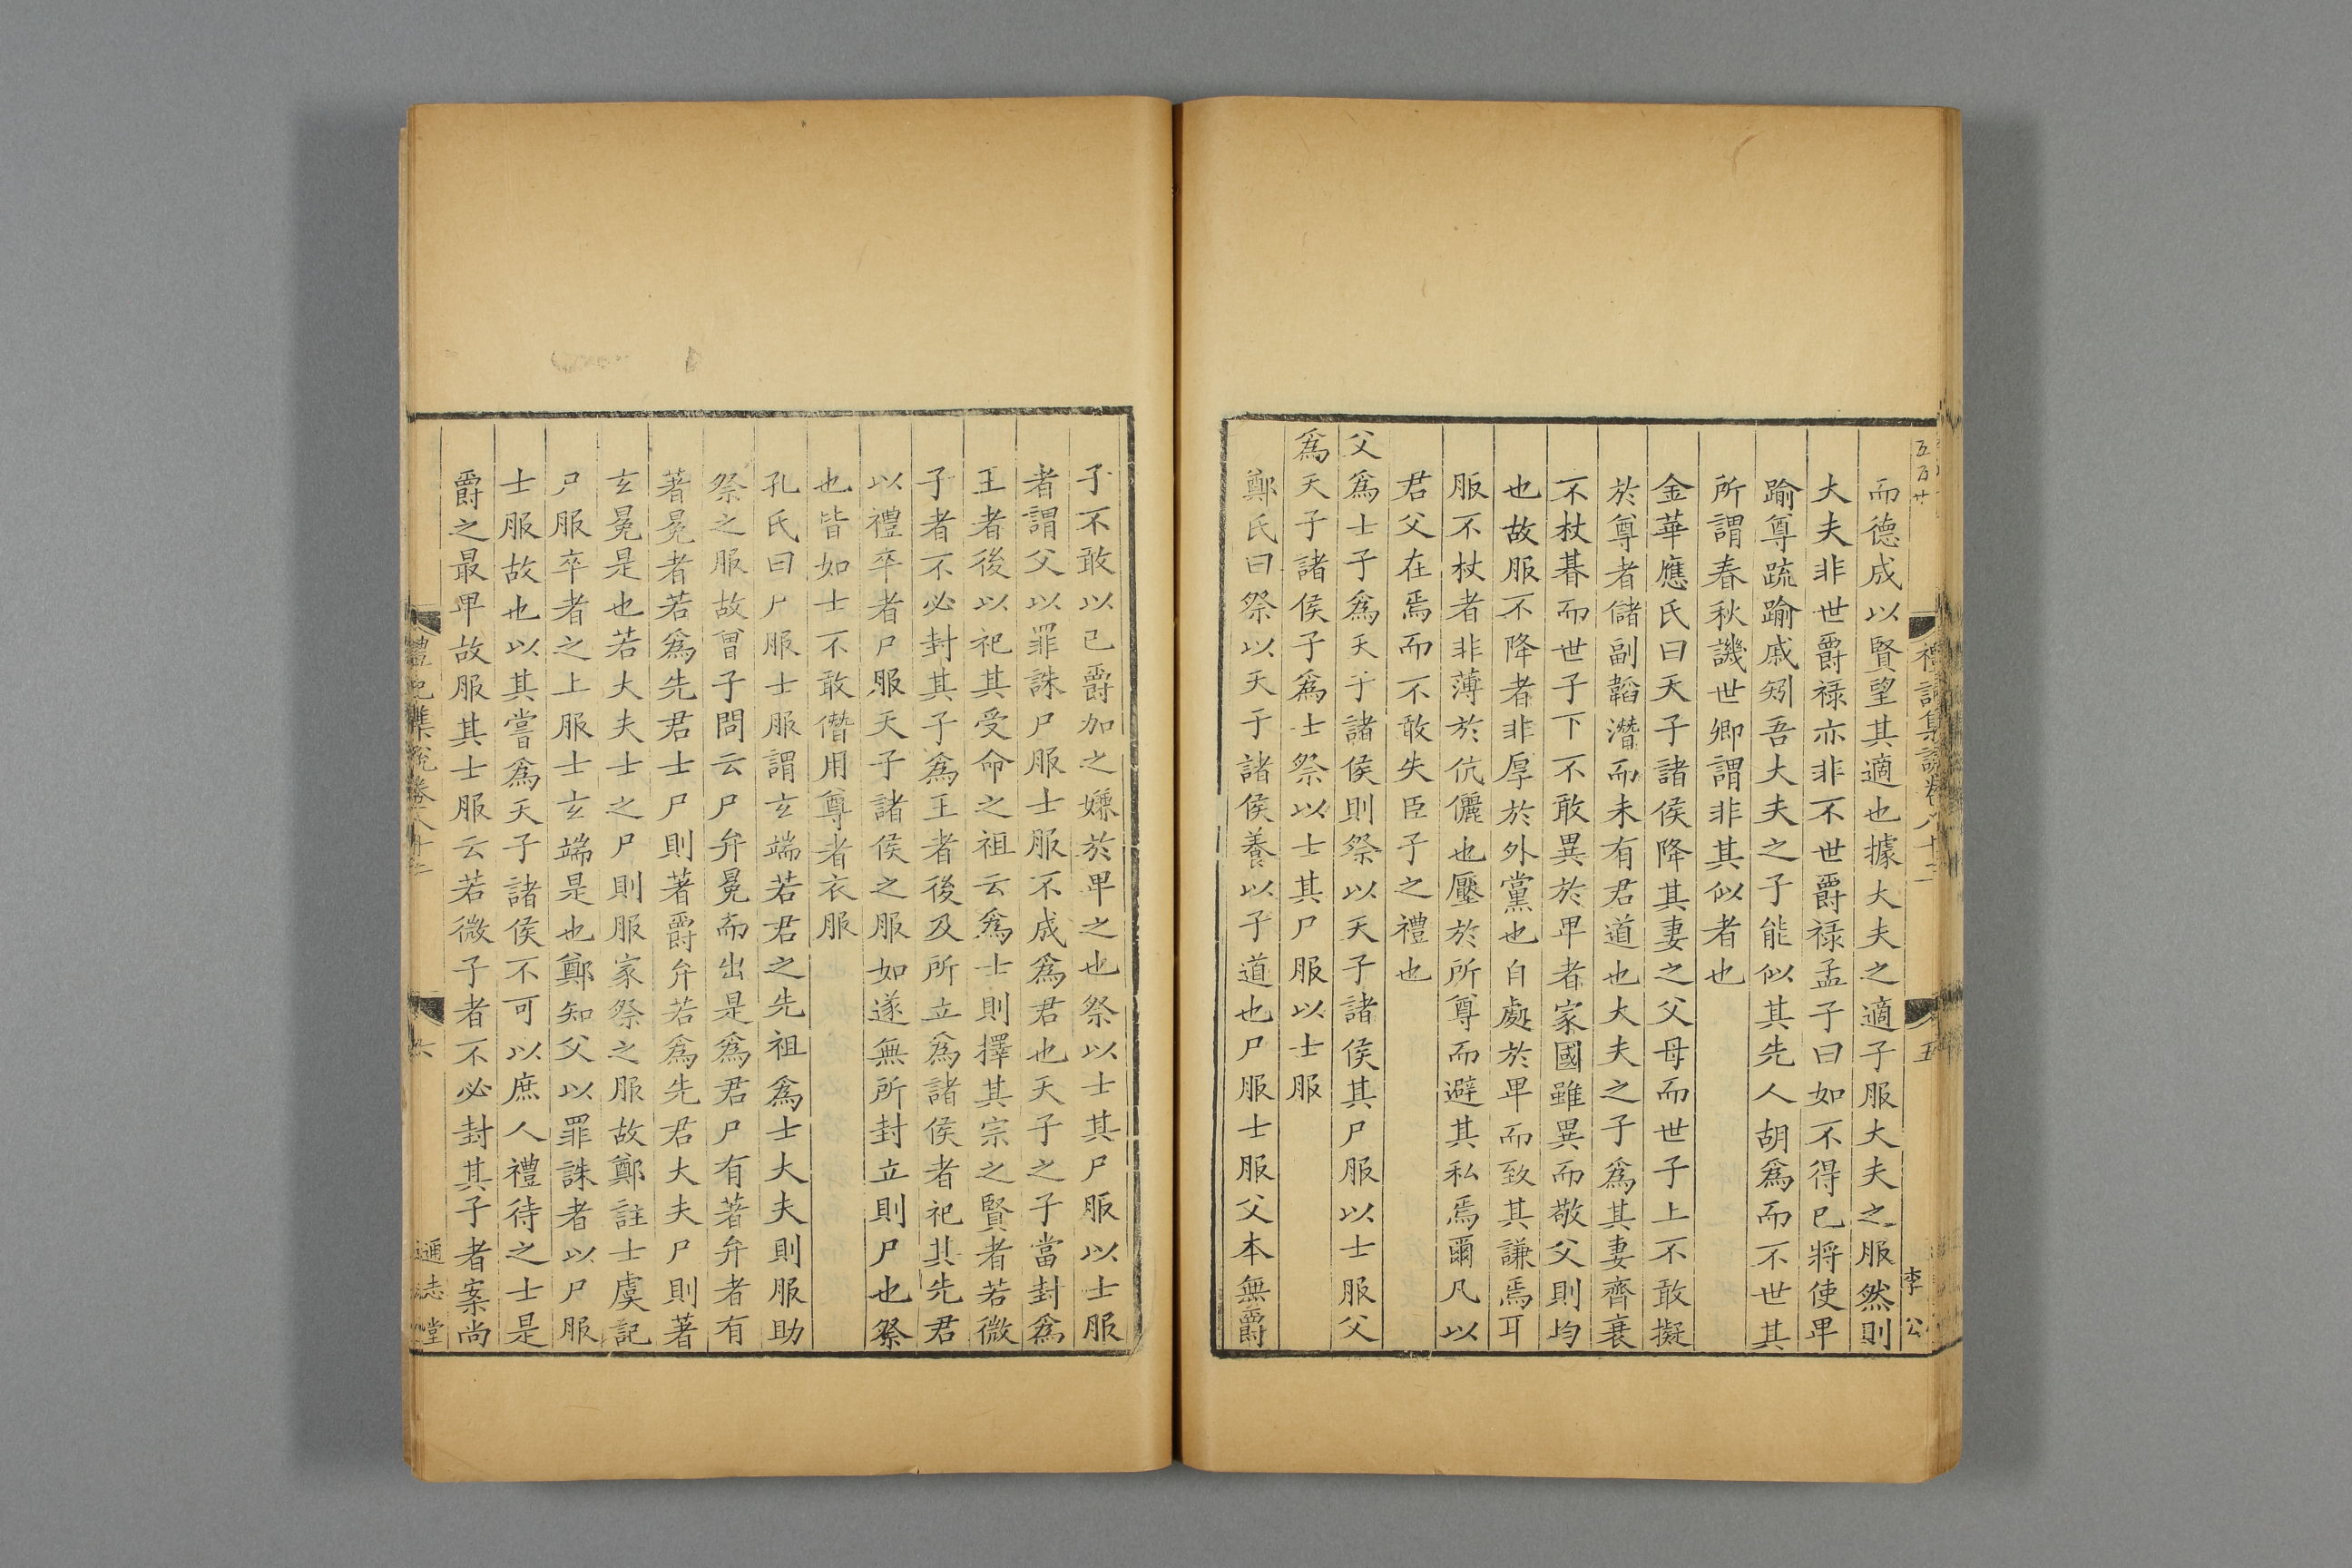 五百廿
禮記集說卷八十二
五
李公
而德成以賢望其適也據大夫之適子服大夫之服然則
大夫非世爵祿亦非不世爵祿孟子曰如不得已將使卑
踰尊疏踰戚矧吾大夫之子能似其先人胡爲而不世其
所謂春秋譏世卿謂非其似者也
金華應氏曰天子諸侯降其妻之父母而世子上不敢擬
於尊者儲副韜潛而未有君道也大夫之子爲其妻齊衰
不杖朞而世子下不敢異於卑者家國雖異而敬父則均
也故服不降者非厚於外黨也自處於卑而致其謙焉耳
服不杖者非薄於伉儷也壓於所尊而避其私焉爾凡以
君父在焉而不敢失臣子之禮也
父爲士子爲天子諸侯則祭以天子諸侯其尸服以士服父
爲天子諸侯子爲士祭以士其尸服以士服
鄭氏曰祭以天子諸侯養以子道也尸服士服父本無爵
子不敢以己爵加之嫌於卑之也祭以士其尸服以士服
者謂父以罪誅尸服士服不成爲君也天子之子當封爲
王者後以祀其受命之祖云爲士則擇其宗之賢者若微
子者不必封其子爲王者後及所立爲諸侯者祀其先君
以禮卒者尸服天子諸侯之服如遂無所封立則尸也祭
也皆如士不敢僭用尊者衣服
孔氏曰尸服士服謂玄端若君之先祖爲士大夫則服助
祭之服故曾子問云尸弁冕而出是爲君尸有著弁者有
著冕者若爲先君士尸則著爵弁若爲先君大夫尸則著
玄冕是也若大夫士之尸則服家祭之服故鄭註士虞記
尸服卒者之上服士玄端是也鄭知父以罪誅者以尸服
士服故也以其嘗爲天子諸侯不可以庶人禮待之士是
爵之最卑故服其士服云若微子者不必封其子者案尚
禮記集說卷八十二
六
通志堂